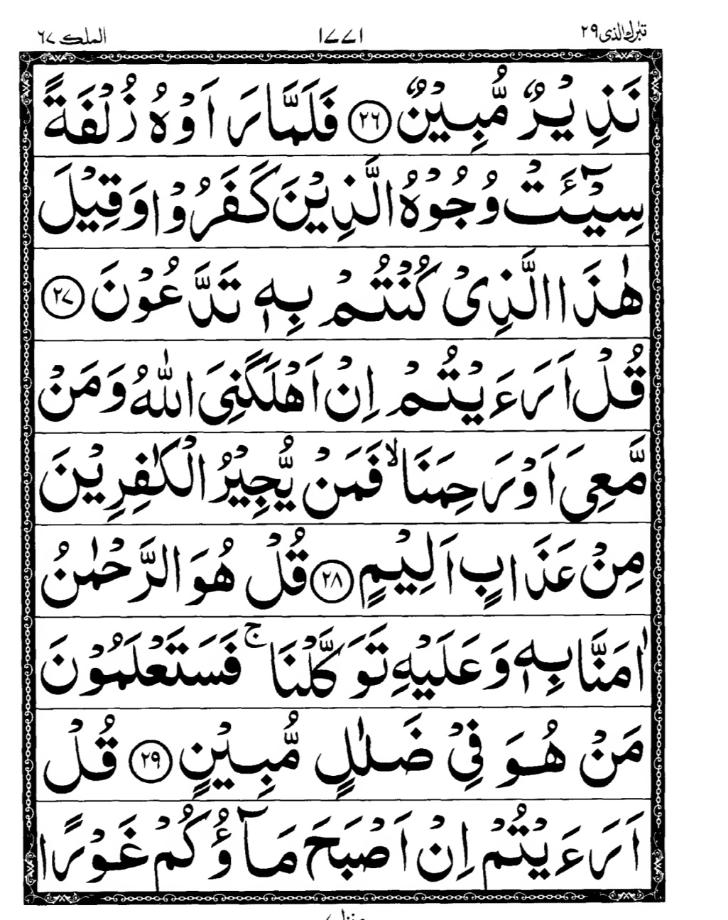 الملك ٦٧ ١٧٧١ تبٰرك الذی ٢٩
نَذِیْرٌ مُّبِیْنٌ ﴿٢٦﴾ فَلَمَّا رَاَوْهُ زُلْفَةً
سِیْٓـَٔتْ وُجُوْهُ الَّذِیْنَ كَفَرُوْا وَ قِیْلَ
هٰذَا الَّذِیْ كُنْتُمْ بِهٖ تَدَّعُوْنَ ﴿٢٧﴾
قُلْ اَرَءَیْتُمْ اِنْ اَهْلَكَنِیَ اللّٰهُ وَ مَنْ
مَّعِیَ اَوْ رَحِمَنَا ۙ فَمَنْ یُّجِیْرُ الْكٰفِرِیْنَ
مِنْ عَذَابٍ اَلِیْمٍ ﴿٢٨﴾ قُلْ هُوَ الرَّحْمٰنُ
اٰمَنَّا بِهٖ وَ عَلَیْهِ تَوَكَّلْنَا ۚ فَسَتَعْلَمُوْنَ
مَنْ هُوَ فِیْ ضَلٰلٍ مُّبِیْنٍ ﴿٢٩﴾ قُلْ
اَرَءَیْتُمْ اِنْ اَصْبَحَ مَآؤُكُمْ غَوْرًا